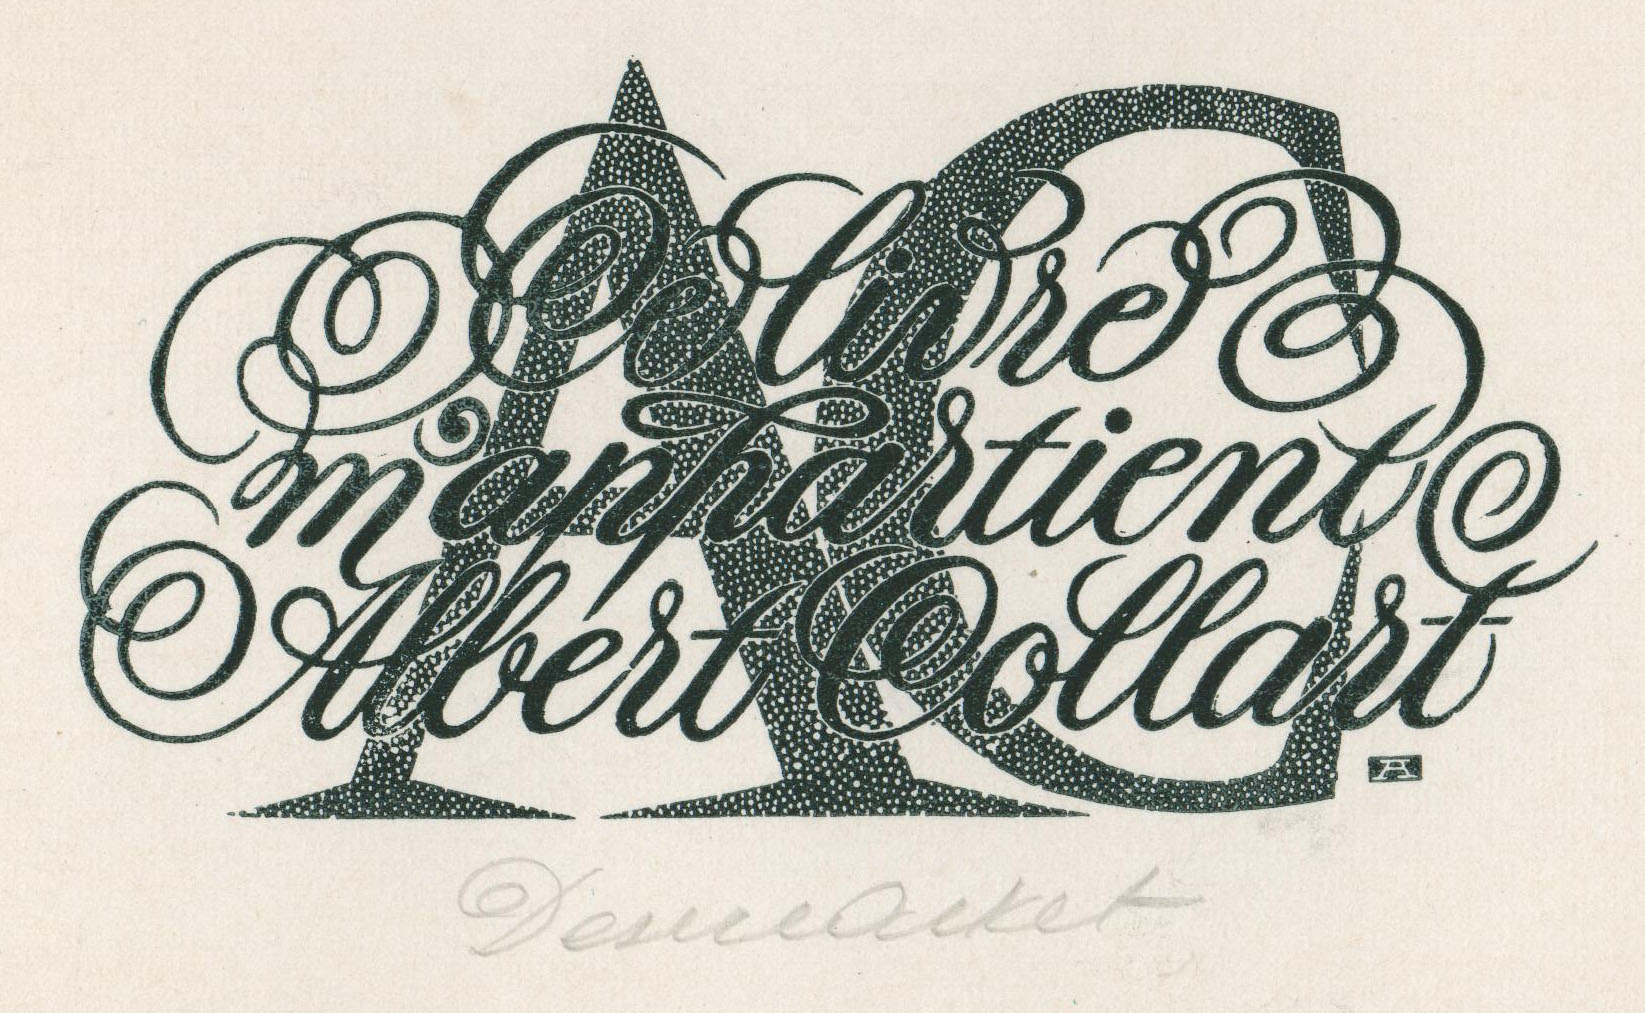 AC
Ce livre
m'appartient
Albert Collart